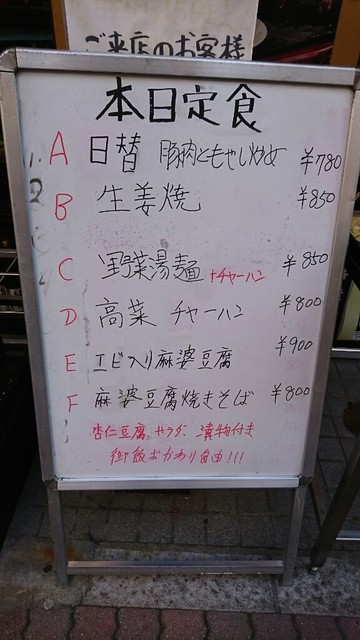 ご来店のお客様
本日定食
A 日替 豚肉ともやし炒め ¥780
B 生姜焼 ¥850
C 野菜湯麺 +チャーハン ¥850
D 高菜 チャーハン ¥800
E エビ入り麻婆豆腐 ¥900
F 麻婆豆腐焼きそば ¥800
杏仁豆腐、サラダ、漬物付き
御飯おかわり自由!!!